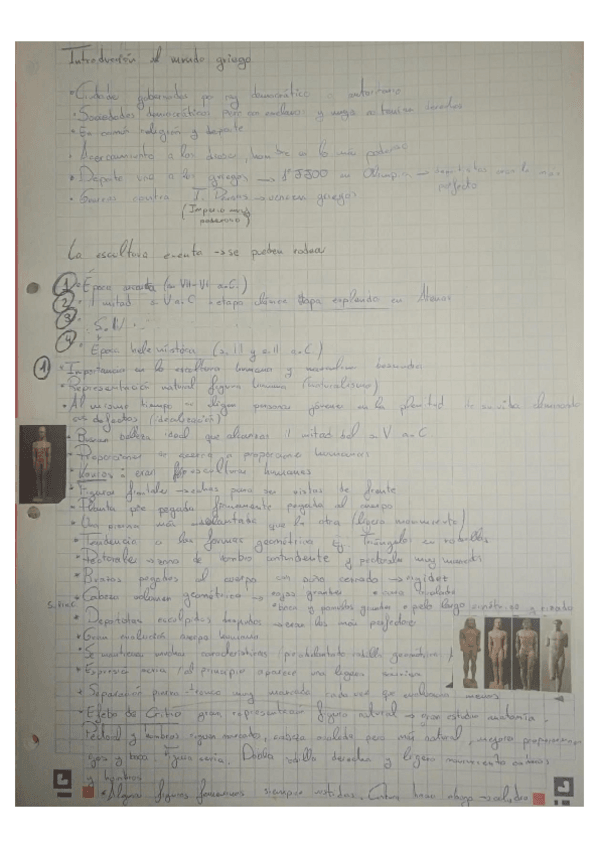 Introducción al mundo griego
• Ciudades gobernadas por rey democrático o autoritario
• Sociedades democráticas pero con esclavos y mujer no tenían derechos
• En común religión y deporte
• Acercamiento a los dioses, hombre es lo más poderoso
• Deporte une a los griegos → 1º JJOO en Olimpia → deportistas eran lo más
perfecto
• Guerras contra I. Persa → vencieron griegos
(Imperio muy
poderoso)
La escultura exenta → se pueden rodear
1 • Época arcaica (s. VII-VI a.C.)
2 • 1 mitad s. V a.C → etapa clásica etapa esplendor en Atenas
3 • S. IV
4 • Época helenística (s. III y II a.C)
1 • Importancia en la escultura humana y masculina desnudos
• Representación natural figura humana (naturalismo)
• Al mismo tiempo → eligen personas jóvenes en la plenitud de su vida eliminando
sus defectos (idealización)
• Buscan belleza ideal que alcanzan 1 mitad del s. V a.C
• Proporciones en cuerpo a proporciones humanas
• Kouros: eran esculturas humanas
• Figuras frontales → hechas para ser vistas de frente
• Planta pie pegada firmemente pegada al cuerpo
• Una pierna más adelantada que la otra (ligero movimiento)
• Tendencia a las formas geométricas ej Triángulos en rodillas
• Pectorales → zona de hombros contundente y pectorales muy marcados
• Brazos pegados al cuerpo con puño cerrado → rigidez
• Cabeza volumen geométrico → ojos grandes • cara ovalada
• boca y pómulos grandes • pelo largo
• Deportistas esculpidos desnudos → eran los más perfectos
• Gran evolución cuerpo humano
• Se mantienen muchas características
• Expresión seria / al principio aparece una ligera sonrisa
• Separación pierna-tronco muy marcada, cada vez que evoluciona menos
• Efebo de Critio gran representación figura natural → gran estudio anatomía.
Pectoral y hombros sigue marcado, cabeza ovalada pero más natural, mejora proporciones
ojos y boca. Dobla rodilla derecha y ligero movimiento
y hombros
• Algunas figuras femeninas siempre vestidas.